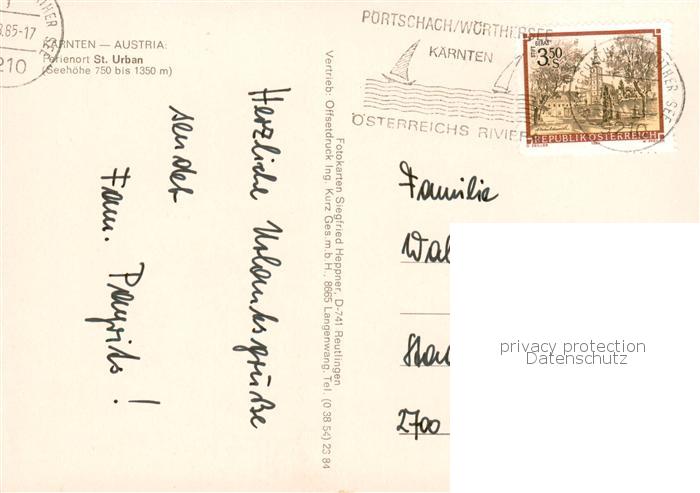 KÄRNTEN — AUSTRIA:
Ferienort St. Urban
(Seehöhe 750 bis 1350 m)
.85-17
210
Herzliche Urlaubsgrüße
sendet
Fam.
Fotokarten Siegfried Heppner, D-741 Reutlingen
Vertrieb: Offsetdruck Ing. Kurz Ges.m.b.H., 8665 Langenwang, Tel. (0 38 54) 23 84
PÖRTSCHACH/WÖRTHERSEE
KÄRNTEN
ÖSTERREICHS RIVIER
3.50
S
REPUBLIK ÖSTERREICH
Familie
Wal
2700
privacy protection
Datenschutz